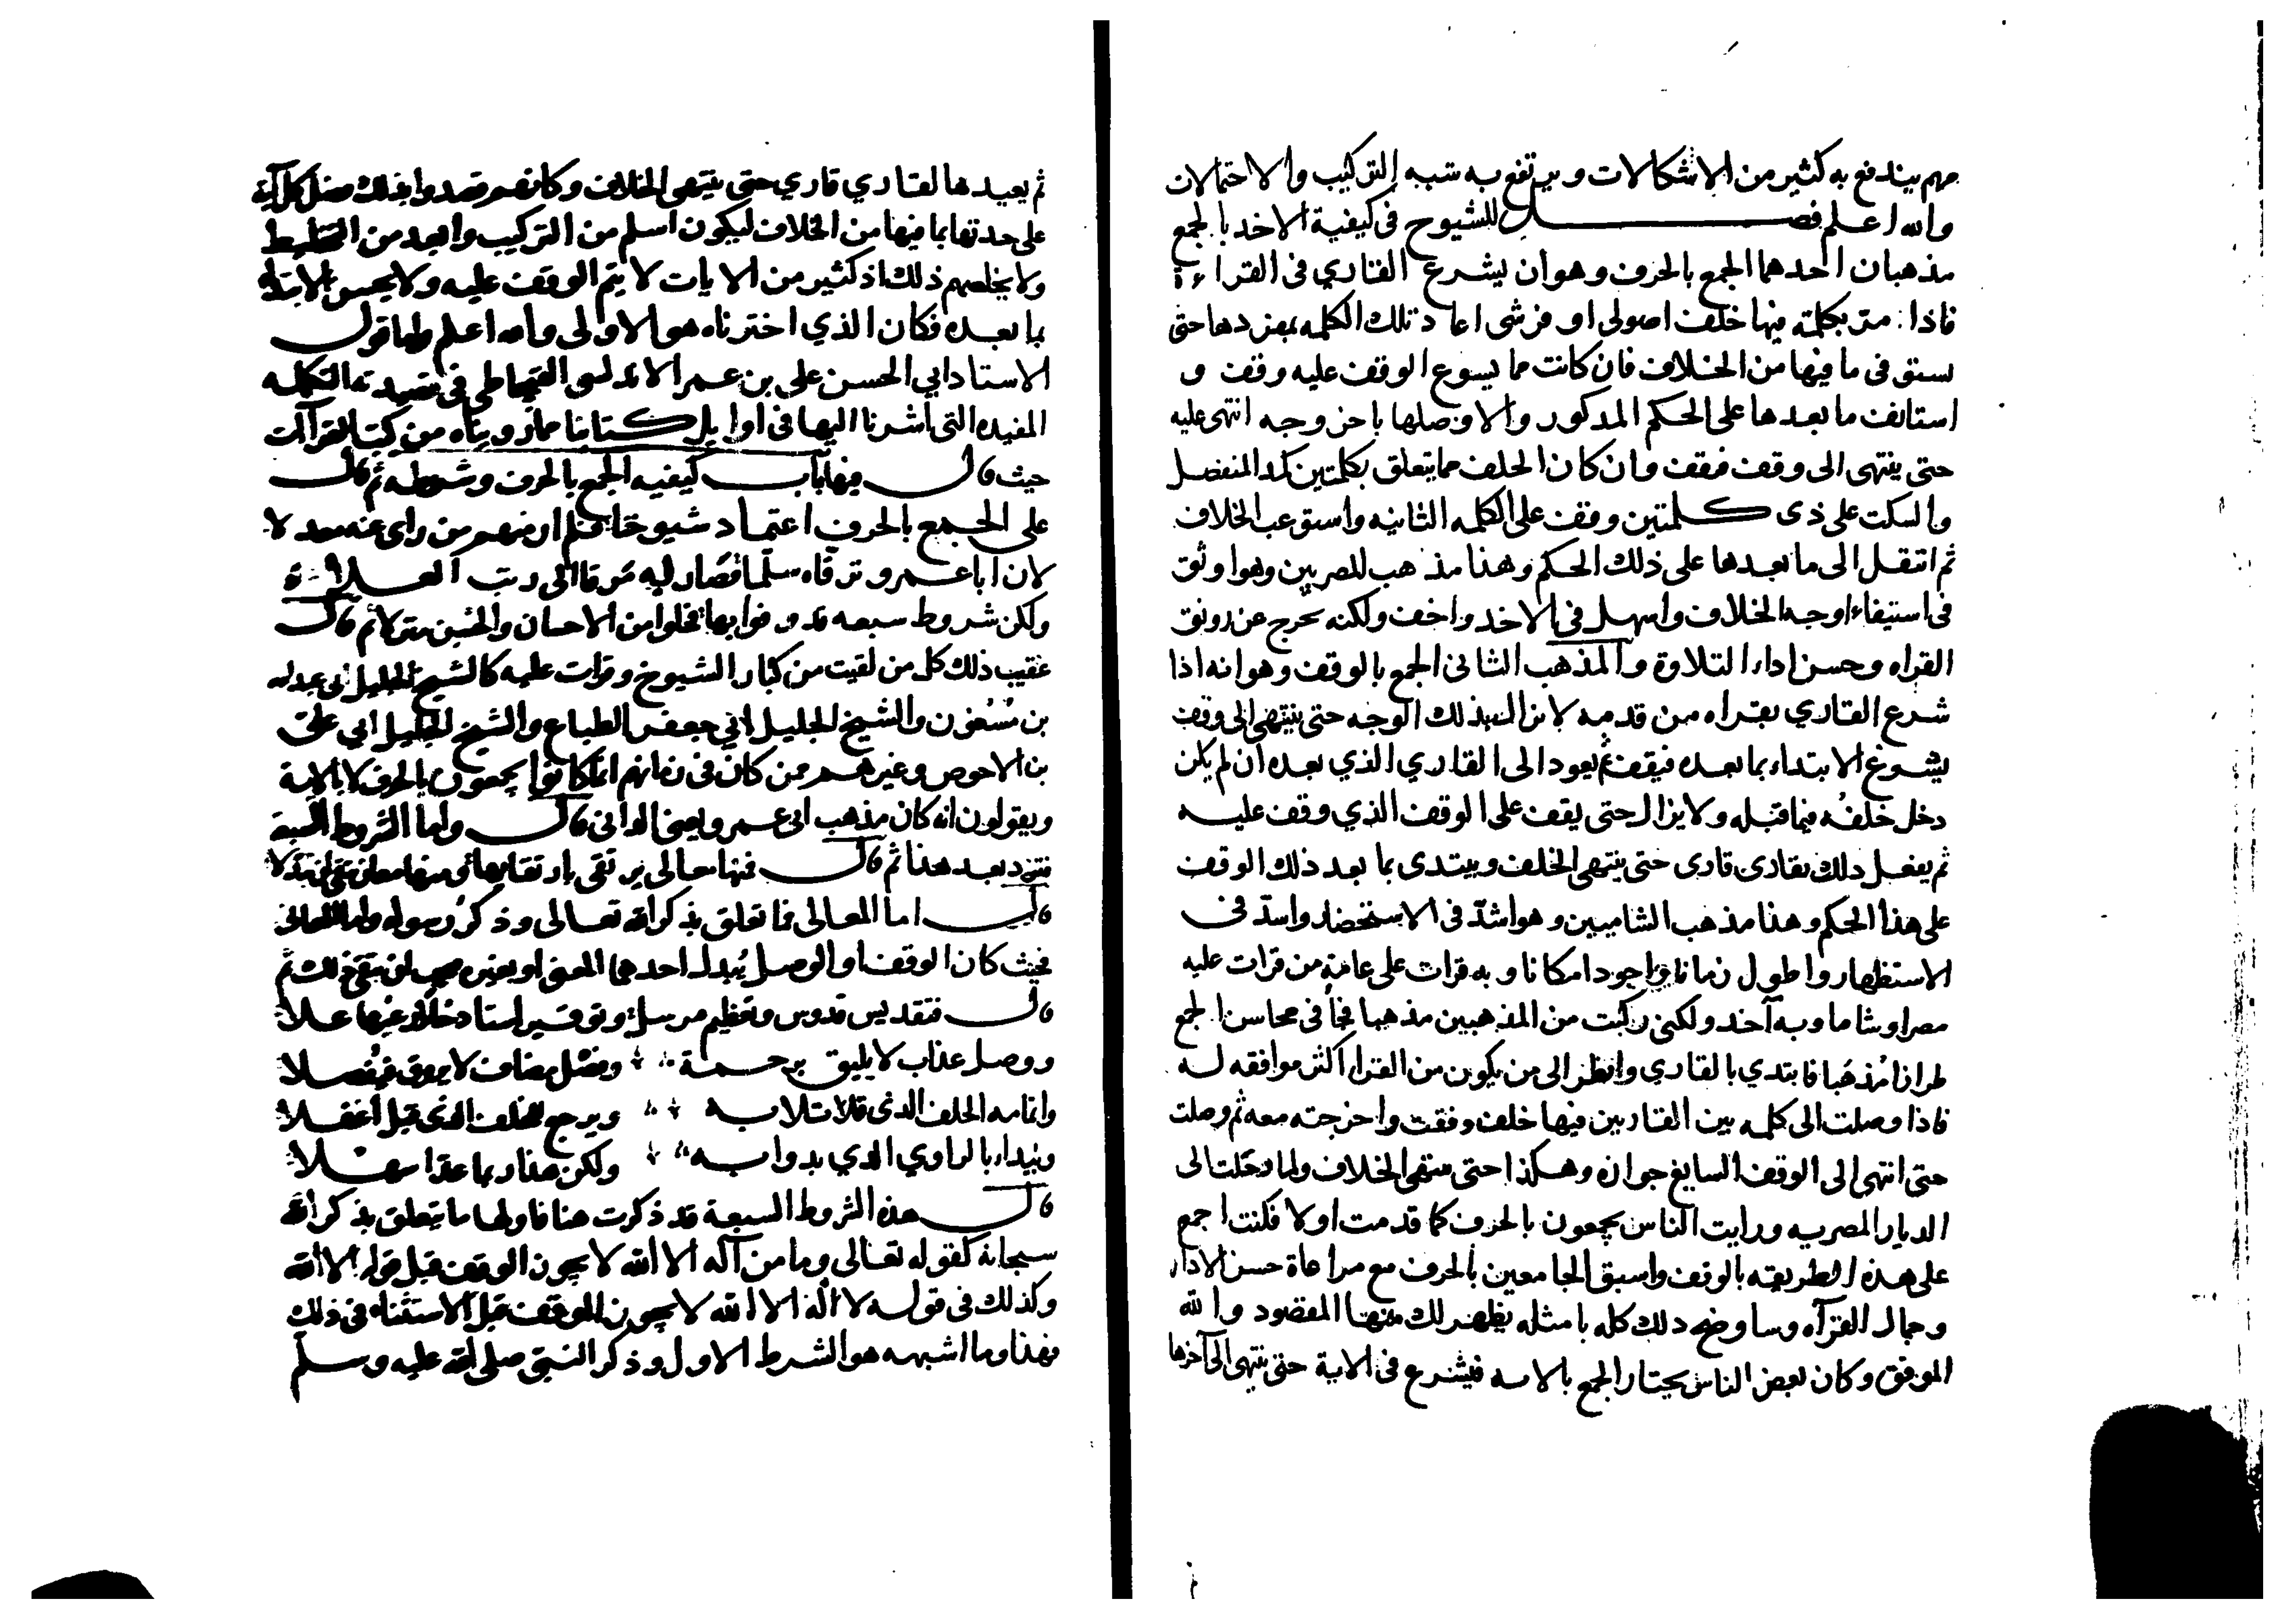 مهم يندفع به كثير من الاشكالات ويرتفع به شبه التركيب والاحتمالات
والله اعلم فصل للشيوخ فى كيفية الاخد بالجمع
مذهبان احدهما الجمع بالحرف وهو ان يشرع القاري فى القراءة
فاذا مر بكلمة فيها خلف اصولى او فرشى اعاد تلك الكلمه بمفردها حتى
يستوفى ما فيها من الخلاف فان كانت مما يسوع الوقف عليه وقف و
استانف ما بعدها على الحكم المدكور والا وصلها باخر وجه انتهى عليه
حتى ينتهى الى وقف فيقف وان كان الخلف مما يتعلق بكلمتين كمد المنفصل
والسكت على ذى كلمتين وقف على الكلمه الثانيه واستوعب الخلاف
ثم انتقل الى ما بعدها على ذلك الحكم وهذا مذهب للمصريين وهو اوثق
فى استيفاء اوجه الخلاف واسهل فى الاخد واخف ولكنه يخرج عن رونق
القراه وحسن اداء التلاوة والمذهب الثانى الجمع بالوقف وهو انه اذا
شرع القاري بقراه من قدمه لا يزال بذلك الوجه حتى ينتهى الى وقف
يسوغ الابتداء بما بعده فيقف ثم يعود الى القاري الذي بعده ان لم يكن
دخل خلفه فيما قبله ولا يزال حتى يقف على الوقف الذي وقف عليه
ثم يفعل دلك بقارى قارى حتى ينتهى الخلف ويبتدى بما بعد ذلك الوقف
على هذا الحكم وهذا مذهب الشاميين وهو اشدّ فى الاستحضار واسدّ فى
الاستظهار واطول زمانا واجود امكانا وبه قرات على عامة من قرات عليه
مصرا وشاما وبه آخد ولكنى ركبت من المذهبين مذهبا فجأ فى محاسن الجمع
طرازا مُذهَبا فابتدي بالقاري وانظر الى من يكون من القراء اكثر موافقه له
فاذا وصلت الى كلمه بين القاريين فيها خلف وقفت واخرجته معه ثم وصلت
حتى انتهى الى الوقف السايغ جوازه وهكذا حتى ينتهى الخلاف ولما دخلت الى
الديار المصريه ورايت الناس يجمعون بالحرف كما قدمت اولا فكنت اجمع
على هذه الطريقه بالوقف واسبق الجامعين بالحرف مع مراعاة حسن الاداء
وجمال القرآه وساوضح دلك كله بامثله يظهر لك منها المقصود والله
الموفق وكان بعض الناس يختار الجمع بالايه فيشرع فى الاية حتى ينتهى الى آخرها
ثم يعيدها لقاري قاري حتى ينتهى الخلاف وكانهم قصدوا بذلك فصل كل آية
على حدتها بما فيها من الخلاف ليكون اسلم من التركيب وابعد من التخليط
ولا يخلصهم ذلك اذ كثير من الايات لا يتم الوقف عليه ولا يحسن الابتداء
بما بعده فكان الذي اخترناه هو الاولى والله اعلم واما قول
الاستاد ابي الحسن على بن عمر الاندلسى القيجاطى فى قصيدته التكمله
المفيده التى اشرنا اليها فى اوايل كتابنا مما رويناه من كتب القرآات
حيث قال فيها باب كيفيه الجمع بالحرف وشروطه ثم قال
على الجمع بالحرف اعتماد شيوخنا فلم ار منهم من راى عنه معدلا
لان ابا عمرو ترقاه سلما فصار ليه مرقا الى رتب العلا
ولكن شروط سبعه قد وفوا بها فحلوا من الاحسان والحسن منزلا ثم قال
عقيب ذلك كل من لقيت من كبار الشيوخ وقرات عليه كالشيخ الجليل ابى عبد الله
بن مُسْغون والشيخ الجليل ابي جعفر الطباع والشيخ الجليل ابي على
بن الاحوص وغيرهم ممن كان فى زمانهم انما كانوا يجمعون بالحرف لا بالاية
ويقولون انه كان مذهب ابى عمرو يعنى الدانى قال واما الشروط السبعة
فترد بعد هذا ثم قال فمنها معالى يرتقى بارتقايها ومنها معان يتقى ان تبدلا
قال اما المعالى فما تعلق بذكر الله تعالى وذكر رسوله واما المعانى
فحيث كان الوقف او الوصل يُبدل احدهما المعنى او يغيره فيجب ان يتقى ذلك ثم
قال فتقديس قدوس وتعظيم مرسل وتوقير استاد حلا رعيها علا
ووصل عذاب لا يليق برحمة وفصل مضاف لا يروق فيُفصلا
واتمامه الخلف الذى قد تلا به ويرجع للخلف الذى قبل اغفلا
ويبدا بالراوي الدي بدوا به ولكن هذا ربما عدا سهلا
قال هذه الشروط السبعة قد ذكرت هنا فاولها ما يتعلق بذكر الله
سبحانه كقوله تعالى وما من آله الا الله لا يجوز الوقف قبل قوله الا الله
وكذلك فى قوله لا اله الا الله لا يجوز الوقف قبل الاستثناء فى ذلك
فهذا وما اشبهه هو الشرط الاول وذكر النبىّ صلى الله عليه وسلم